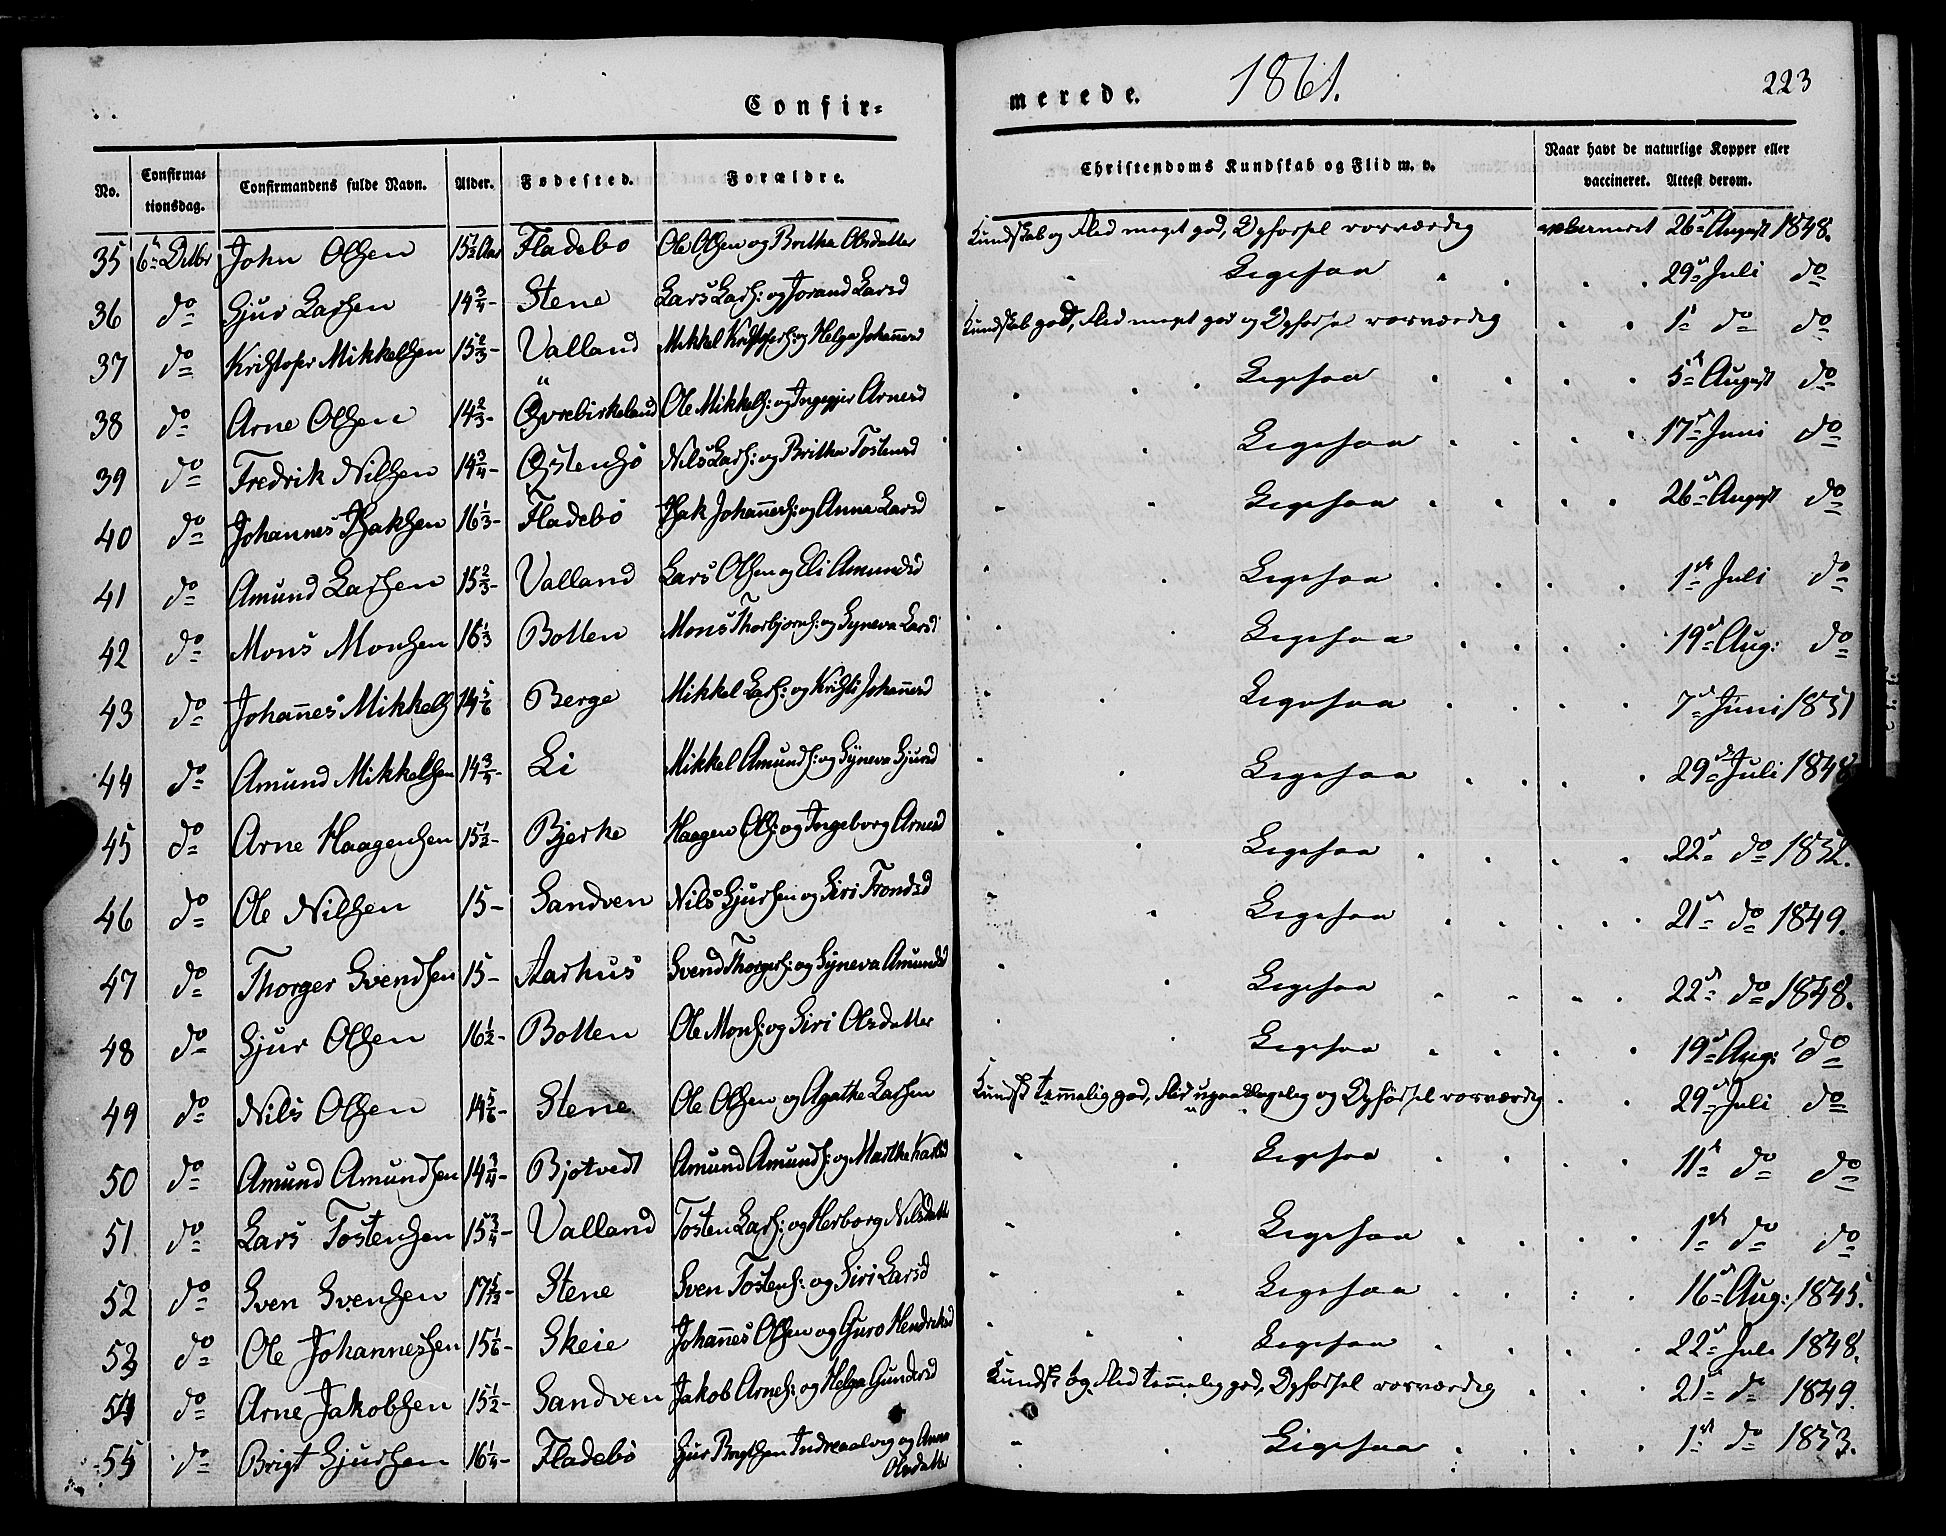 Confir-
merede.
1861.
223
No.
Confirma-
tionsdag.
Confirmandens fulde Navn.
Alder.
Fødested.
Forældre.
Christendoms Kundskab og Flid m. v.
Naar havt de naturlige Kopper eller
vaccineret. Attest derom.
35 6te Octbr John Olsen 15½ Aar Fladebø Ole Olsen og Britha Olsdatter Kundskab og Flid meget god, Opførsel rosværdig vaccineret 26de August 1848.
36 do Sjur Larsen 14¾ - Stene Lars Lars: og Jorand Larsd Ligesaa 29de Juli do
37 do Kristofer Mikkelsen 15⅔ - Valland Mikkel Kristofers: og Helga Johannesd Kundskab god, Flid meget god og Opførsel rosværdig 1ste do do
38 do Arne Olsen 14⅔ - Øvrebirkeland Ole Mikkels: og Ingegjer Arnesd Ligesaa 5te August do
39 do Fredrik Nilsen 14¾ - Østensø Nils Lars: og Britha Tostensd Ligesaa 17de Juni do
40 do Johannes Isaksen 16⅓ - Fladebø Isak Johannes: og Anna Larsd Ligesaa 26de August do
41 do Amund Larsen 15⅔ - Valland Lars Olsen og Eli Amundsd Ligesaa 1ste Juli do
42 do Mons Monsen 16⅓ Botten Mons Thorbjørns: og Syneva Larsd Ligesaa 19de Aug: do
43 do Johannes Mikkels 14⅚ Berge Mikkel Lars: og Kristi Johannesd Ligesaa 7de Juni 1851
44 do Amund Mikkelsen 14¾ - Li Mikkel Amunds: og Syneva Sjursd Ligesaa 29de Juli 1848
45 do Arne Haagensen 15½ - Bjerke Haagen Ols: og Ingeborg Arnesd Ligesaa 22de do 1852.
46 do Ole Nilsen 15 - Sandven Nils Sjursen og Siri Trondsd Ligesaa 21de do 1849.
47 do Thorger Svendsen 15 - Aarhus Svend Thorgers: og Syneva Amundsd Ligesaa 22de do 1848.
48 do Sjur Olsen 16½ - Botten Ole Mons: og Siri Olsdatter Ligesaa 19de Aug: do
49 do Nils Olsen 14⅚ - Stene Ole Olsen og Agathe Larsen Kundsk temmelig god, Flid upaaklagelig og Opførsel rosværdig 29de Juli do
50 do Amund Amundsen 14¾ - Bjotvedt Amund Amunds: og Marthe Larsd Ligesaa 11te do do
51 do Lars Tostensen 15¾ - Valland Tosten Lars: og Herborg Nilsdatte Ligesaa 1ste do do
52 do Sven Svensen 17 5/12 - Stene Sven Tostens: og Siri Larsd Ligesaa 16de Aug: 1845.
53 do Ole Johannessen 15⅙ - Skeie Johannes Olsen og Guro Hendriksd Ligesaa 22de Juli 1848.
54 do Arne Jakobsen 15½ - Sandven Jakob Arnes: og Helga Gundersd Kundsk og Flid temmelig god, Opførsel rosværdig 21de do 1849.
55 do Brigt Sjursen 16¼ - Fladebø Sjur Brigtsen Indreaalvig og Anna Olsdatter Ligesaa 1ste do 1853.